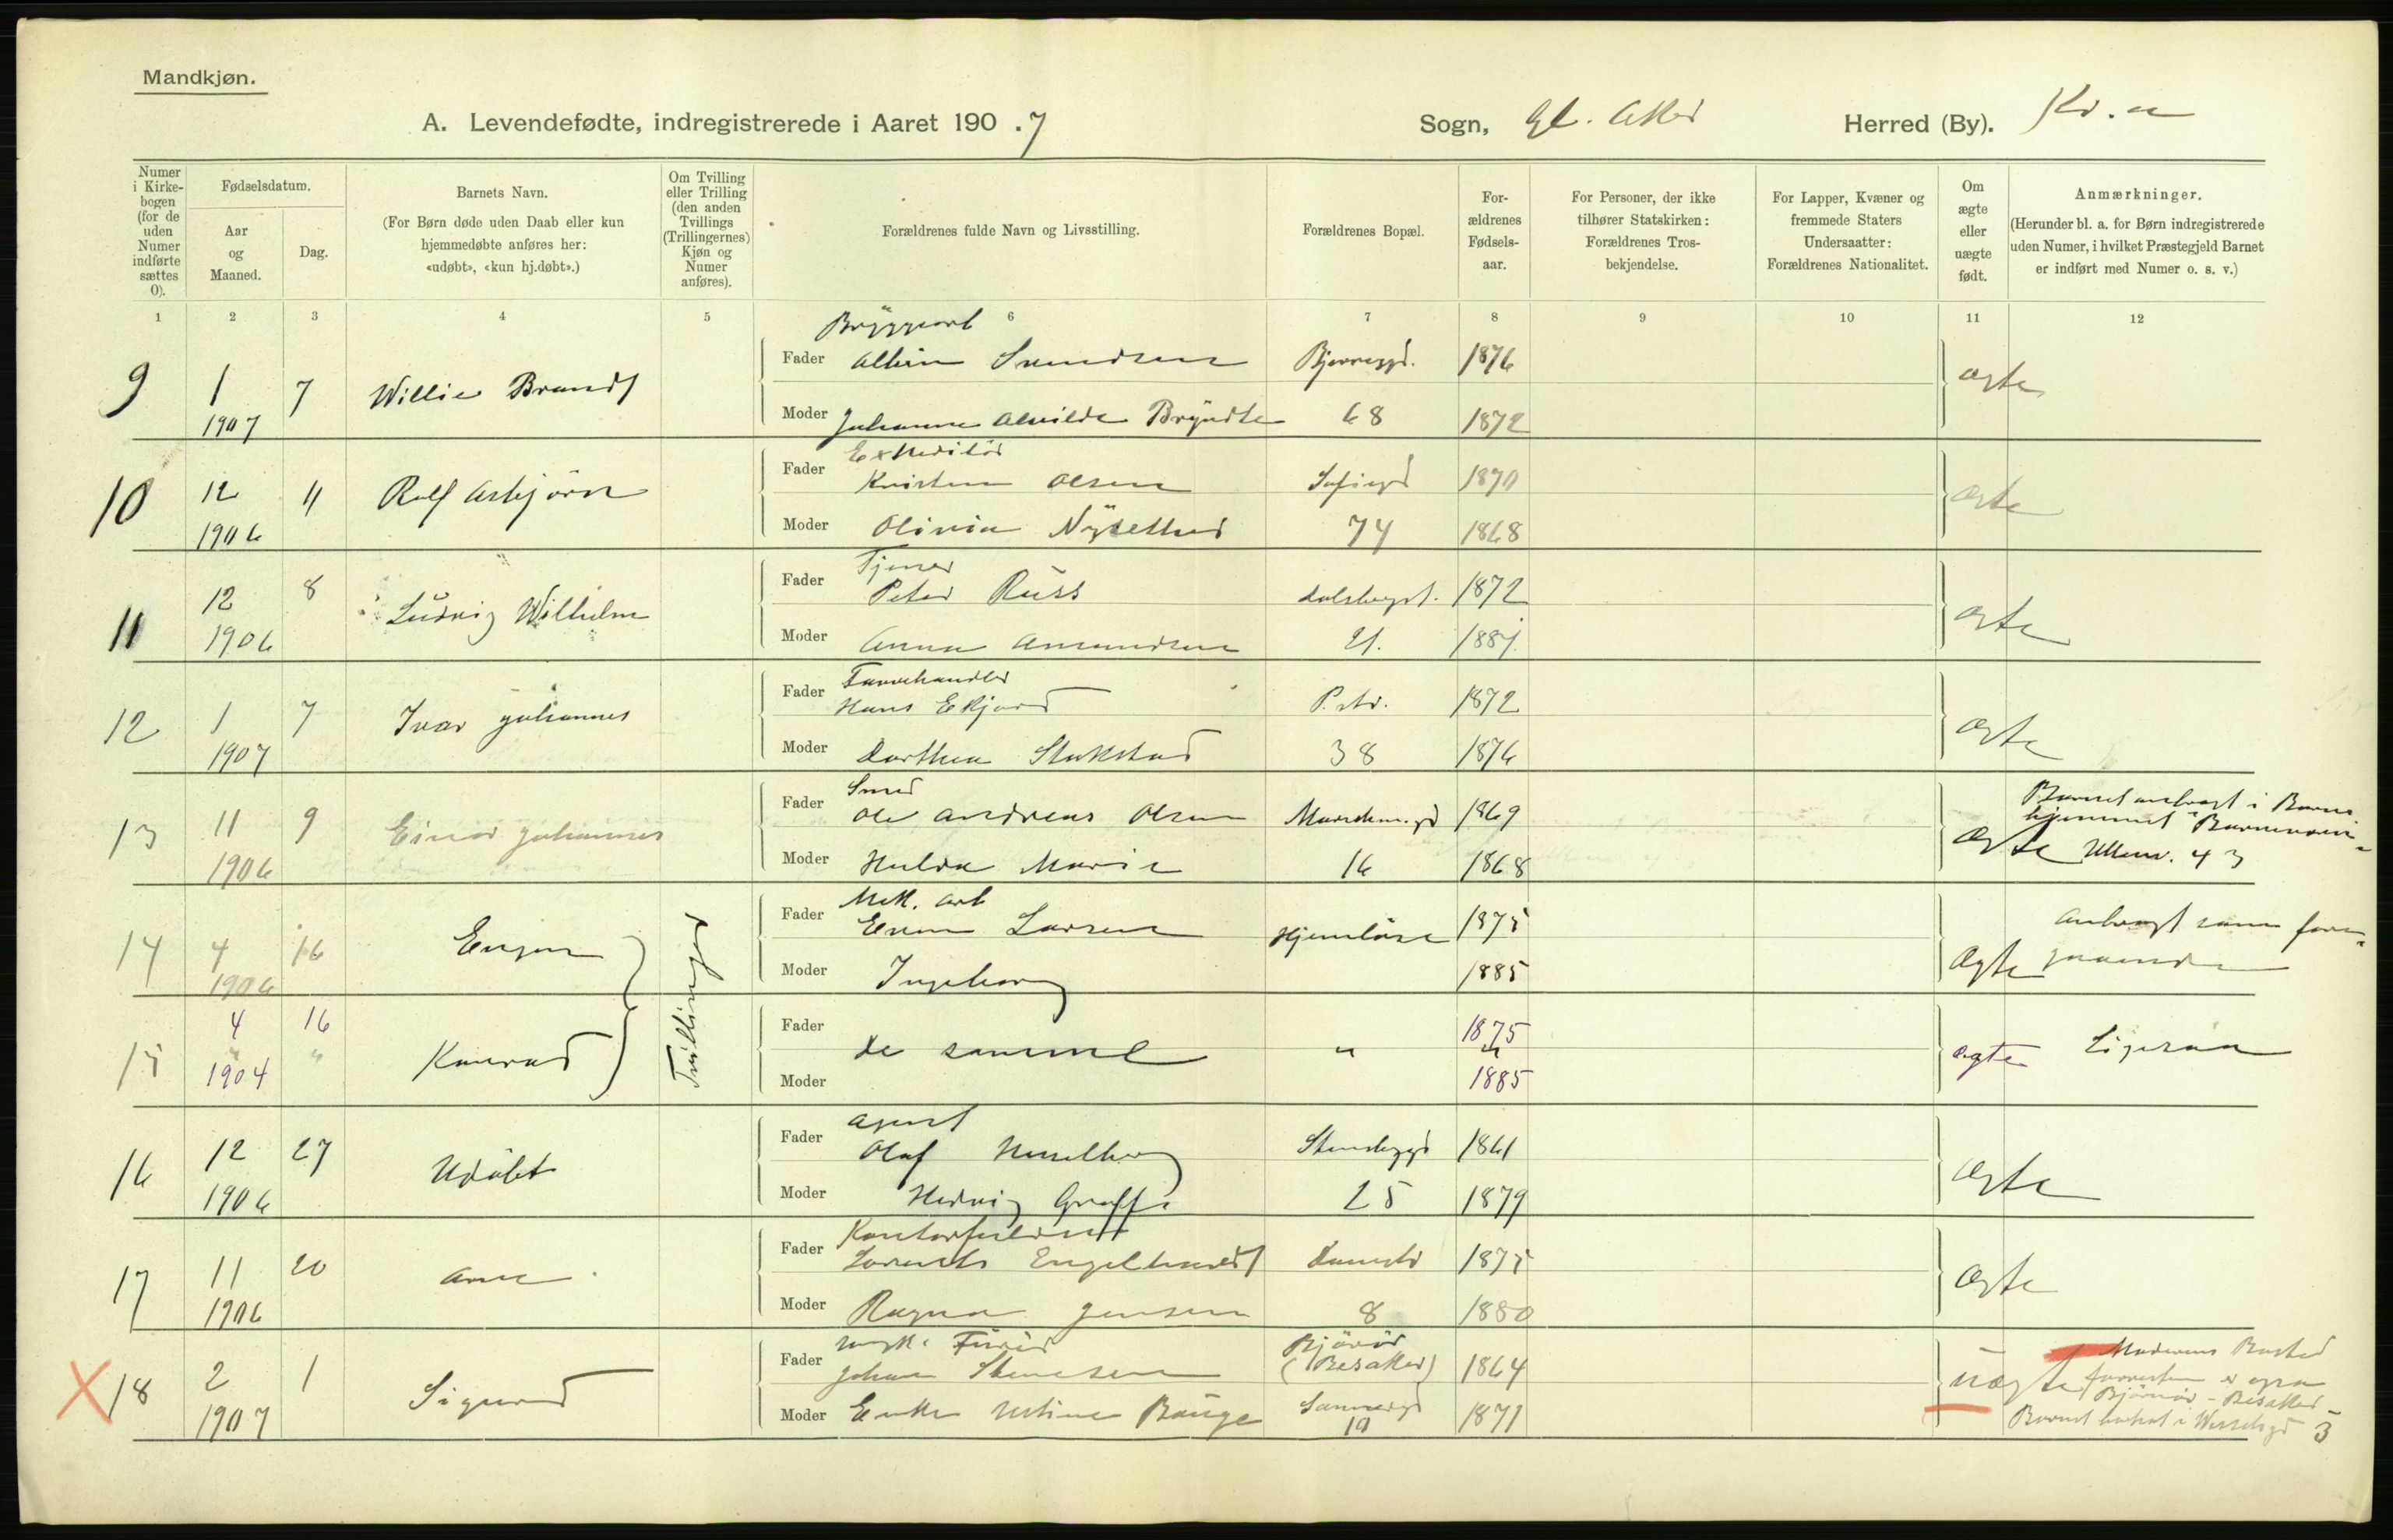 Mandkjøn.
A. Levendefødte, indregistrerede i Aaret 190.7
Sogn, Gl. Aker
Herred (By). Kr.a
Numer i Kirkebogen (for de uden Numer indførte sættes 0).
Fødselsdatum.
Aar og Maaned.
Dag.
Barnets Navn.
(For Børn døde uden Daab eller kun hjemmedøbte anføres her: «udøbt», «kun hj.døbt».)
Om Tvilling eller Trilling (den anden Tvillings (Trillingernes) Kjøn og Numer anføres).
Forældrenes fulde Navn og Livsstilling.
Forældrenes Bopæl.
Forældrenes Fødselsaar.
For Personer, der ikke tilhører Statskirken: Forældrenes Trosbekjendelse.
For Lapper, Kvæner og fremmede Staters Undersaatter: Forældrenes Nationalitet.
Om ægte eller uægte født.
Anmærkninger.
(Herunder bl. a. for Børn indregistrerede uden Numer, i hvilket Præstegjeld Barnet er indført med Numer o. s. v.)
1 2 3 4 5 6 7 8 9 10 11 12
Bryggearb
9 1 7 Willie Brandt Fader Albin Svendsen 1876 ægte
1907 Moder Johanne Alvilde 68 1872
Expeditør
10 12 11 Rolf Asbjørn Fader Kristen Olsen Sofiegd 1870 ægte
1906 Moder Olivia 74 1868
Tjener
11 12 8 Ludvig Wilhelm Fader Peter Russ 1872 ægte
1906 Moder Anna Amundsen 21. 1881
Farvehandler
12 1 7 Ivar Johannes Fader Hans P.str. 1872 ægte
1907 Moder Dorthea Stokstad 38 1876
Smed
13 11 9 Einar Johannes Fader Ole Andreas Olsen 1869 ægte Barnet anbragt i Barnehjemmet
1906 Moder Hulda Marie 16 1868 Ullev. 43
Mek. arb
14 4 16 Eugen Tvillinger Fader Even Larsen Hjemløse 1875 Ægte Anbragt som foregaaende
1906 Moder Ingeborg 1885
15 4 16 Konrad Fader de samme " 1875 ægte Ligesaa
1904 Moder 1885
Agent
16 12 27 Udøbt Fader Olaf Stensbggd 1861 ægte
1906 Moder Hedvig 25 1879
Kontorfuldm.
17 11 20 Arne Fader Lorentz Engelhardt Damstr 1875 ægte
1906 Moder Ragna Jensen 8 1880
Bjørør
X 18 2 1 Sigurd Fader Johan Stenesen (Besaker) 1864 uægte Moderens Bosted
1907 Moder Sannergd 10 1871 Bjørnør - Besaker
Barnet i Wesselsgd 3